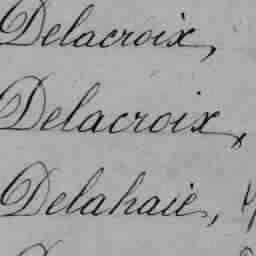 Delacroix,
Delacroix,
Delahaie,